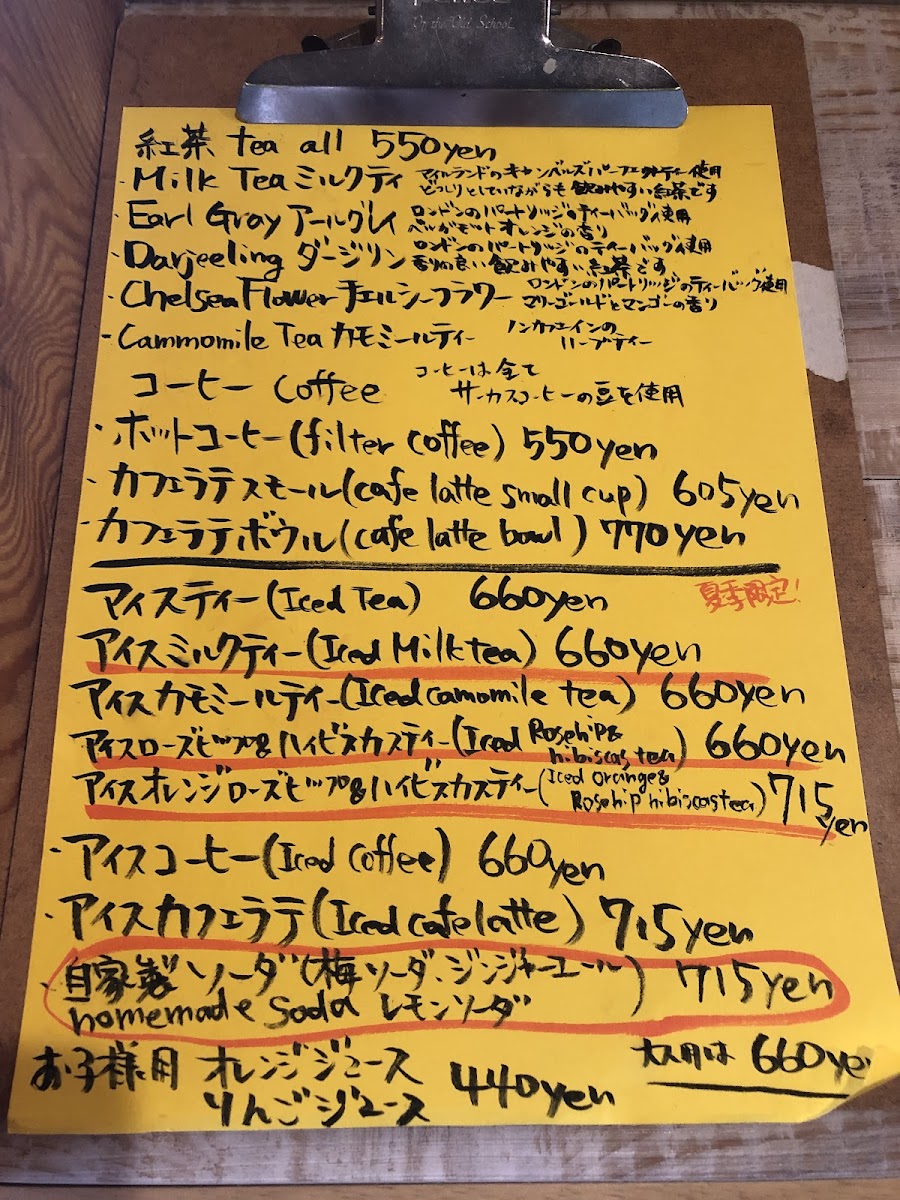 Of the Old School
紅茶 tea all 550yen
・Milk Tea ミルクティ アイルランドのキャンベルズパーフェクトティー使用
どっしりとしていながらも飲みやすい紅茶です
・Earl Gray アールグレイ ロンドンのパートリッジのティーバッグ使用
ベルガモットオレンジの香り
・Darjeeling ダージリン ロンドンのパートリッジのティーバッグ使用
香りの良い飲みやすい紅茶です
・Chelsea Flower チェルシーフラワー ロンドンのパートリッジのティーバッグ使用
マリーゴールドとマンゴーの香り
・Cammomile Tea カモミールティー ノンカフェインの
ハーブティー
コーヒー coffee コーヒーは全て
サーカスコーヒーの豆を使用
・ホットコーヒー(filter coffee) 550yen
・カフェラテスモール(cafe latte small cup) 605yen
・カフェラテボウル(cafe latte bowl) 770yen
アイスティー(Iced Tea) 660yen 夏季限定!
アイスミルクティー(Iced Milk tea) 660yen
アイスカモミールティー(Iced camomile tea) 660yen
アイスローズヒップ&ハイビスカスティー(Iced Rosehip&
hibiscas tea) 660yen
アイスオレンジローズヒップ&ハイビスカスティー(Iced orange&
Rosehip hibiscas tea) 715
yen
・アイスコーヒー(Iced coffee) 660yen
・アイスカフェラテ(Iced cafe latte) 715yen
・自家製 ソーダ(梅ソーダ、ジンジャーエール
homemade soda レモンソーダ) 715yen
お子様用 オレンジジュース
りんごジュース 440yen
大人用は 660ye